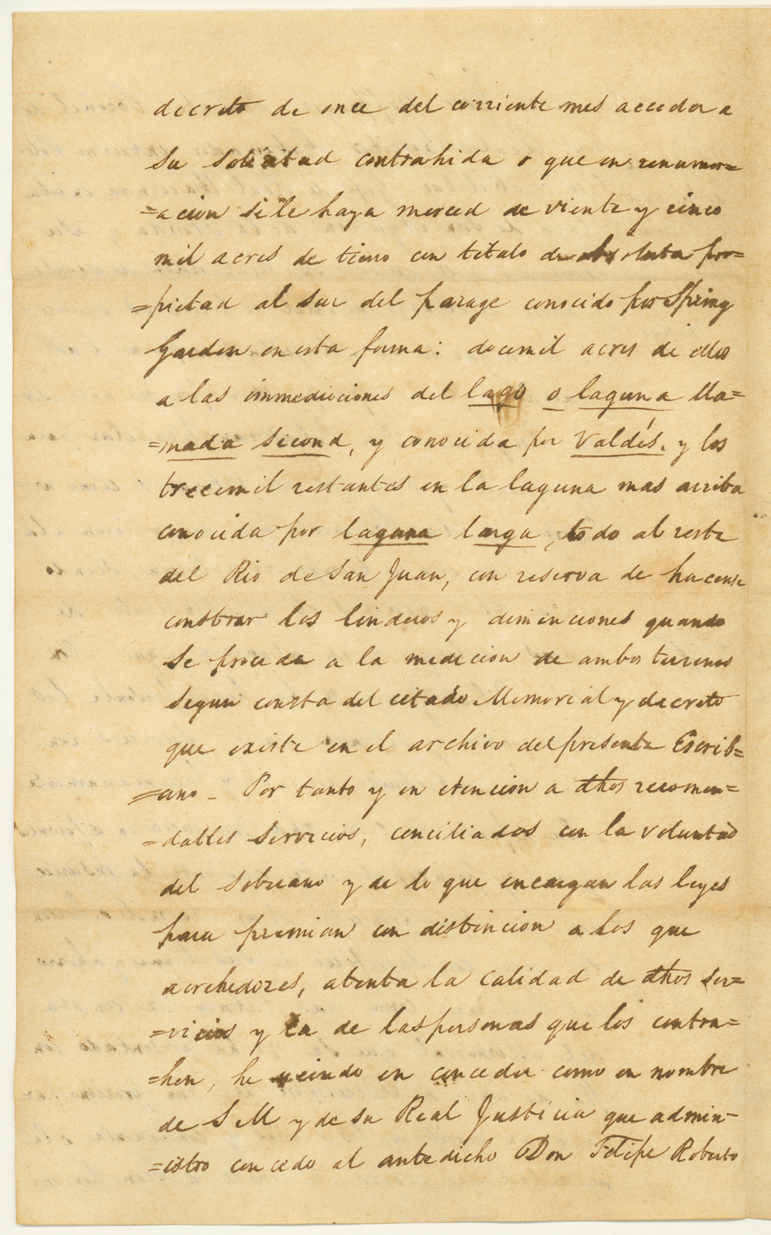 decreto de once del corriente mes acceder a
su solicitud contrahida o que en renumer=
=acion se le haga merced de viente y cinco
mil acres de tierro con titulo de absoluta pro=
=pietad al sur del parage conocido por Spring
Garden en esta forma: docemil acres de ellos
a las immediociones del lago o laguna lla=
=mada second, y conocida por Valdés, y los
trecemil restantes en la laguna mas arriba
conocida por laguna larga, todo al reste
del Rio de San Juan, con reserva de hacense
constrar los linderos y diminciones quando
se proceda a la medicion de ambos terrenos
segun consta del citado Memorial y decreto
que existe en el archivo del presente Escrib=
=ano - Por tanto y en atencion a dhos recomen=
=dables servicios, conciliados con la voluntad
del soberano y de lo que encargan las leyes
para premian con distincion a los que
acrehedores, atenta la calidad de dhos ser=
=vicios y la de las personas que los contra=
=hen, he en conceder como en nombre
de S M y de su Real Justicia que admin-
=istro concedo al antedicho Don Felipe Roberto